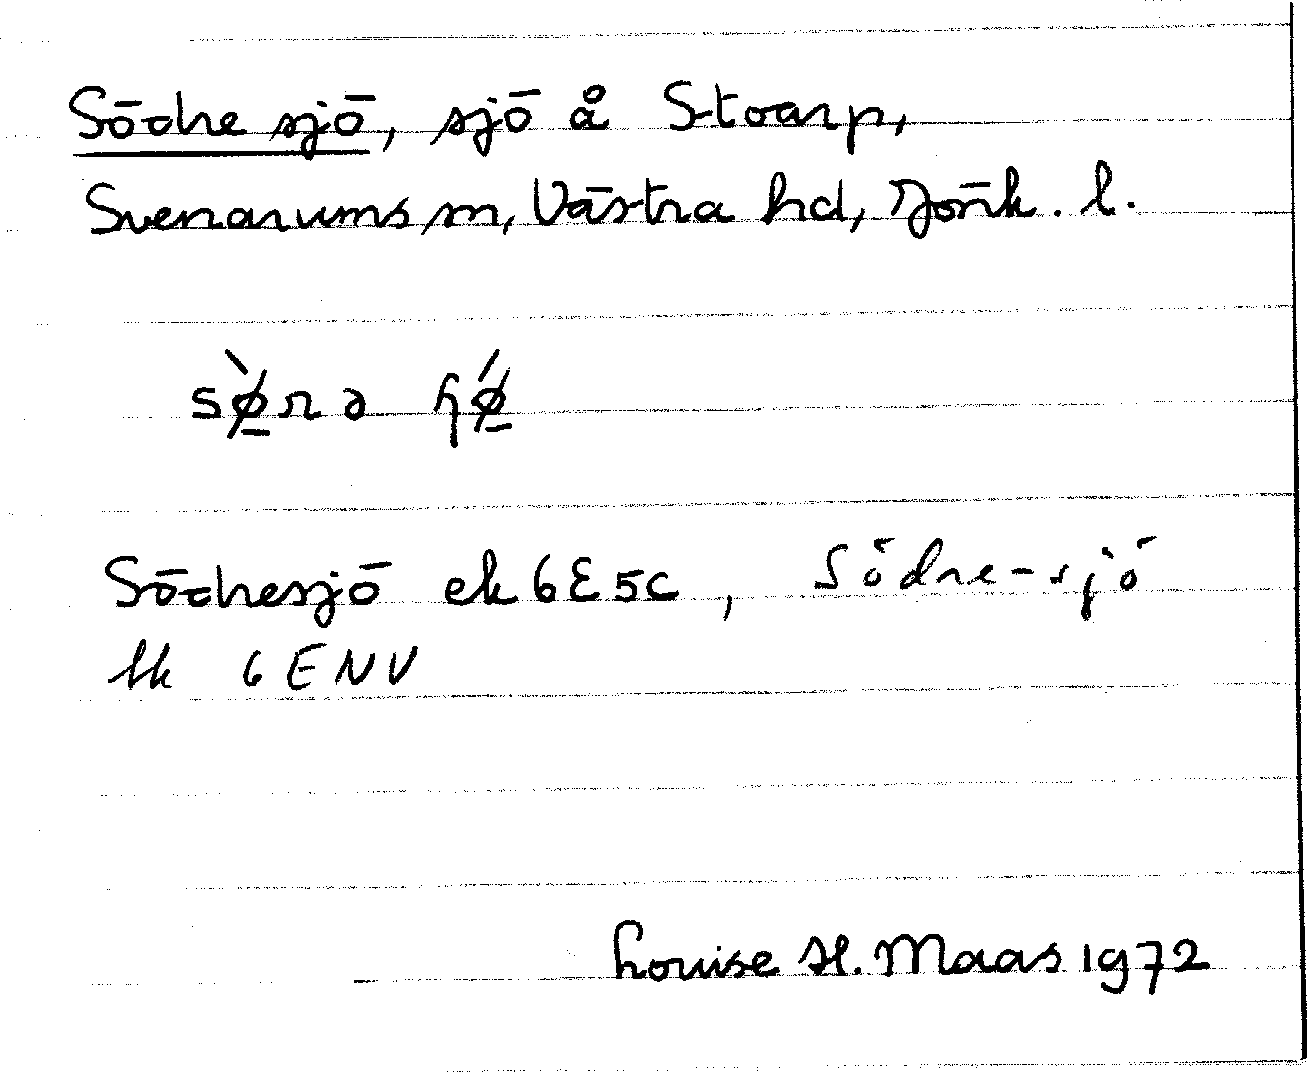 Södre sjö, sjö å Stoarp,
Svenarums sn, Västra hd, Jönk. l.
sø̀rə ɧǿ
Södresjö ek 6E5c, Södre-sjö
tk 6ENV
Louise H. Maas 1972